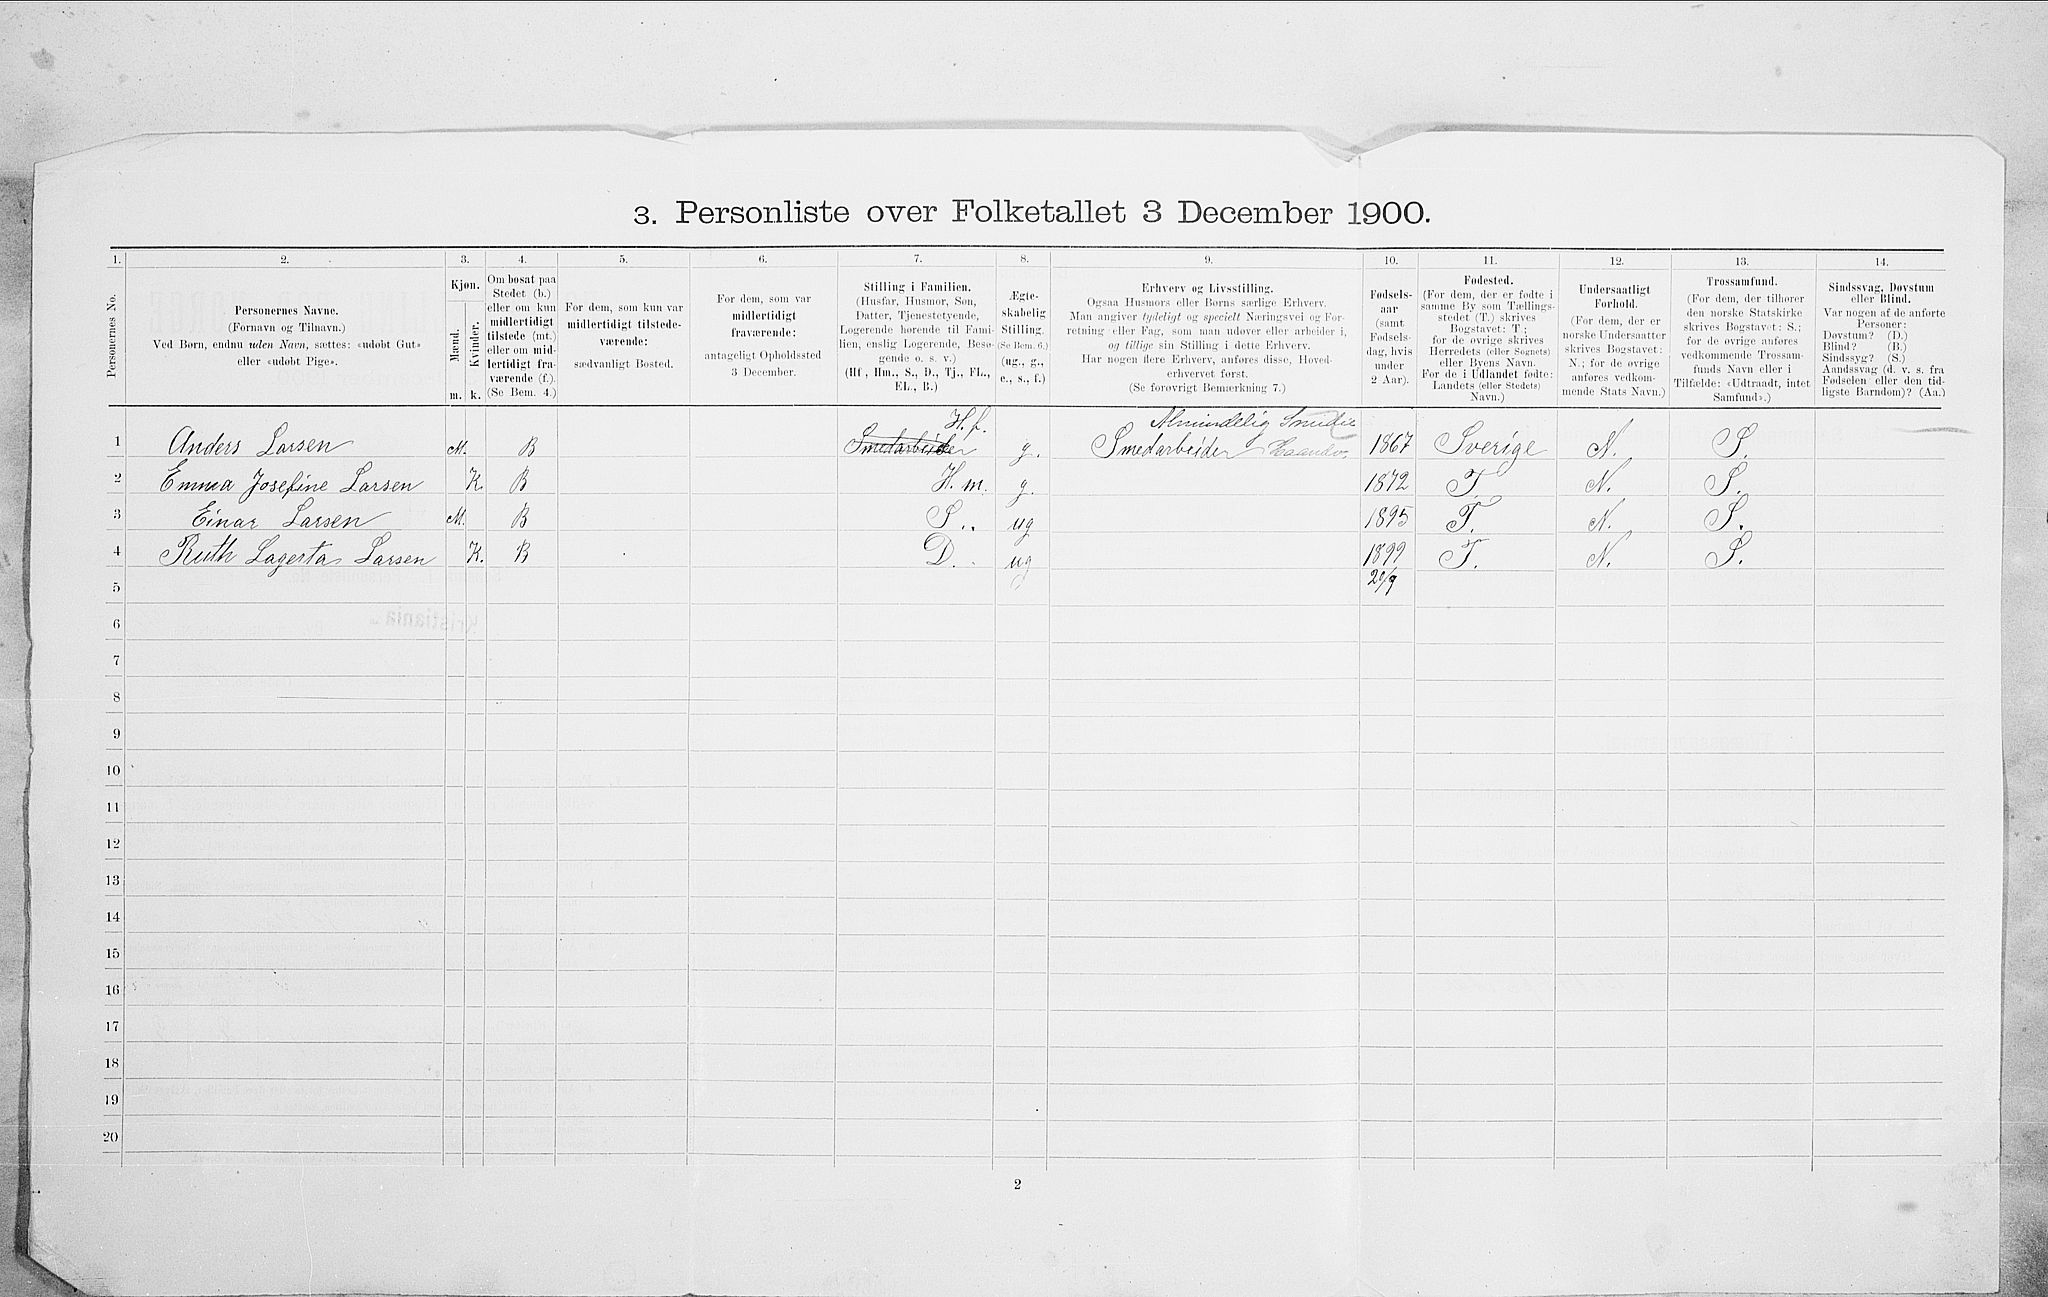 3. Personliste over Folketallet 3 December 1900.
1. 2. 3. 4. 5. 6. 7. 8. 9. 10. 11. 12. 13. 14.
Personernes No.
Personernes Navne.
(Fornavn og Tilnavn.)
Ved Børn, endnu uden Navn, sættes: «udøbt Gut»
eller «udøbt Pige».
Kjøn.
Mænd.
Kvinder.
m. k.
Om bosat paa
Stedet (b.)
eller om kun
midlertidigt
tilstede (mt.)
eller om mid-
lertidigt fra-
værende (f.)
(Se Bem. 4.)
For dem, som kun var
midlertidigt tilstede-
værende:
sædvanligt Bosted.
For dem, som var
midlertidigt
fraværende:
antageligt Opholdssted
3 December.
Stilling i Familien.
(Husfar, Husmor, Søn,
Datter, Tjenestetyende,
Logerende hørende til Fami-
lien, enslig Logerende, Besø-
gende o. s. v.)
(Hf, Hm., S., D., Tj., FL.,
EL., B.)
Ægte-
skabelig
Stilling.
(Se Bem. 6.)
(ug., g.,
e., s., f.)
Erhverv og Livsstilling.
Ogsaa Husmors eller Børns særlige Erhverv.
Man angiver tydeligt og specielt Næringsvei og For-
retning eller Fag, som man udøver eller arbeider i,
og tillige sin Stilling i dette Erhverv.
Har nogen flere Erhverv, anføres disse, Hoved-
erhvervet først.
(Se forøvrigt Bemærkning 7.)
Fødsels-
aar
(samt
Fødsels-
dag, hvis
under
2 Aar).
Fødested.
(For dem, der er fødte i
samme By som Tællings-
stedet (T.) skrives
Bogstavet: T.;
for de øvrige skrives
Herredets (eller Sognets)
eller Byens Navn.
For de i Udlandet fødte:
Landets (eller Stedets)
Navn.)
Undersaatligt
Forhold.
(For dem, der er
norske Undersaatter
skrives Bogstavet:
N.; for de øvrige
anføres vedkom-
mende Stats Navn.)
Trossamfund.
(For dem, der tilhører
den norske Statskirke
skrives Bogstavet: S.;
for de øvrige anføres
vedkommende Trossam-
funds Navn eller i
Tilfælde: «Udtraadt, intet
Samfund».)
Sindssvag, Døvstum
eller Blind.
Var nogen af de anførte
Personer:
Døvstum? (D.)
Blind? (B.)
Sindssyg? (S.)
Aandssvag (d. v. s. fra
Fødselen eller den tid-
ligste Barndom)? (Aa.)
H. f. Almindelig Smedie
1 Anders Larsen M. B Smedarbeider g. Smedarbeider Haandv. 1867 Sverige N. S.
2 Emma Josefine Larsen K. B H. m. g. 1872 T. N. S.
3 Einar Larsen M. B S. ug 1895 T. N. S.
4 Ruth Lagerta Larsen K. B D. ug 1899 T. N. S.
5 20/9
6
7
8
9
10
11
12
13
14
15
16
17
18
19
20
2